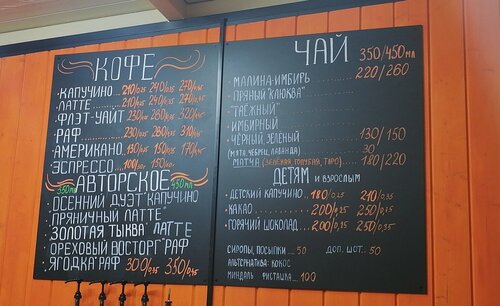 КОФЕ
КАПУЧИНО ... 210/0,25 240/0,35 270/0,45
ЛАТТЕ ... 210/0,25 240/0,35 270/0,45
ФЛЭТ-УАЙТ 230/0,25 280/0,35 320/0,45
РАФ ... 230/0,25 280/0,35 310/0,45
АМЕРИКАНО ... 130/0,25 150/0,35 170/0,45
ЭСПРЕССО ... 100/ 150/
АВТОРСКОЕ
350 мл 450 мл
ОСЕННИЙ ДУЭТ" КАПУЧИНО
"ПРЯНИЧНЫЙ ЛАТТЕ"
"ЗОЛОТАЯ ТЫКВА" ЛАТТЕ
ОРЕХОВЫЙ ВОСТОРГ" РАФ
"ЯГОДКА" РАФ 300/0,35 350/0,45
ЧАЙ 350/450 мл
- МАЛИНА-ИМБИРЬ 220/260
- ПРЯНЫЙ "КЛЮКВА"
- "ТАЁЖНЫЙ"
- ИМБИРНЫЙ
- ЧЁРНЫЙ, ЗЕЛЕНЫЙ 130/150
(МЯТА, ЧЕБРЕЦ, ЛАВАНДА) 30
- МАТЧА (ЗЕЛЁНАЯ, ГОЛУБАЯ, ТАРО) 180/220
ДЕТЯМ И ВЗРОСЛЫМ
- ДЕТСКИЙ КАПУЧИНО ... 180/0,25 210/0,35
- КАКАО ... 200/0,25 250/0,35
- ГОРЯЧИЙ ШОКОЛАД ... 200/0,25 250/0,35
СИРОПЫ, ПОСЫПКИ ... 50 ДОП. ШОТ ... 50
АЛЬТЕРНАТИВА: КОКОС
МИНДАЛЬ ФИСТАШКА ... 100